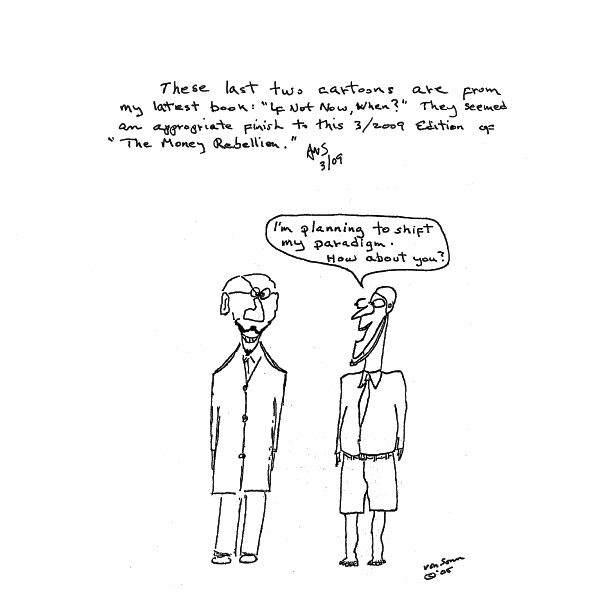 These last two cartoons are from
my latest book: "If Not Now, When?" They seemed
an appropriate finish to this 3/2009 Edition of
"The Money Rebellion."
AVS
3/09
I'm planning to shift
my paradigm.
How about you?
von Sonn
© '05